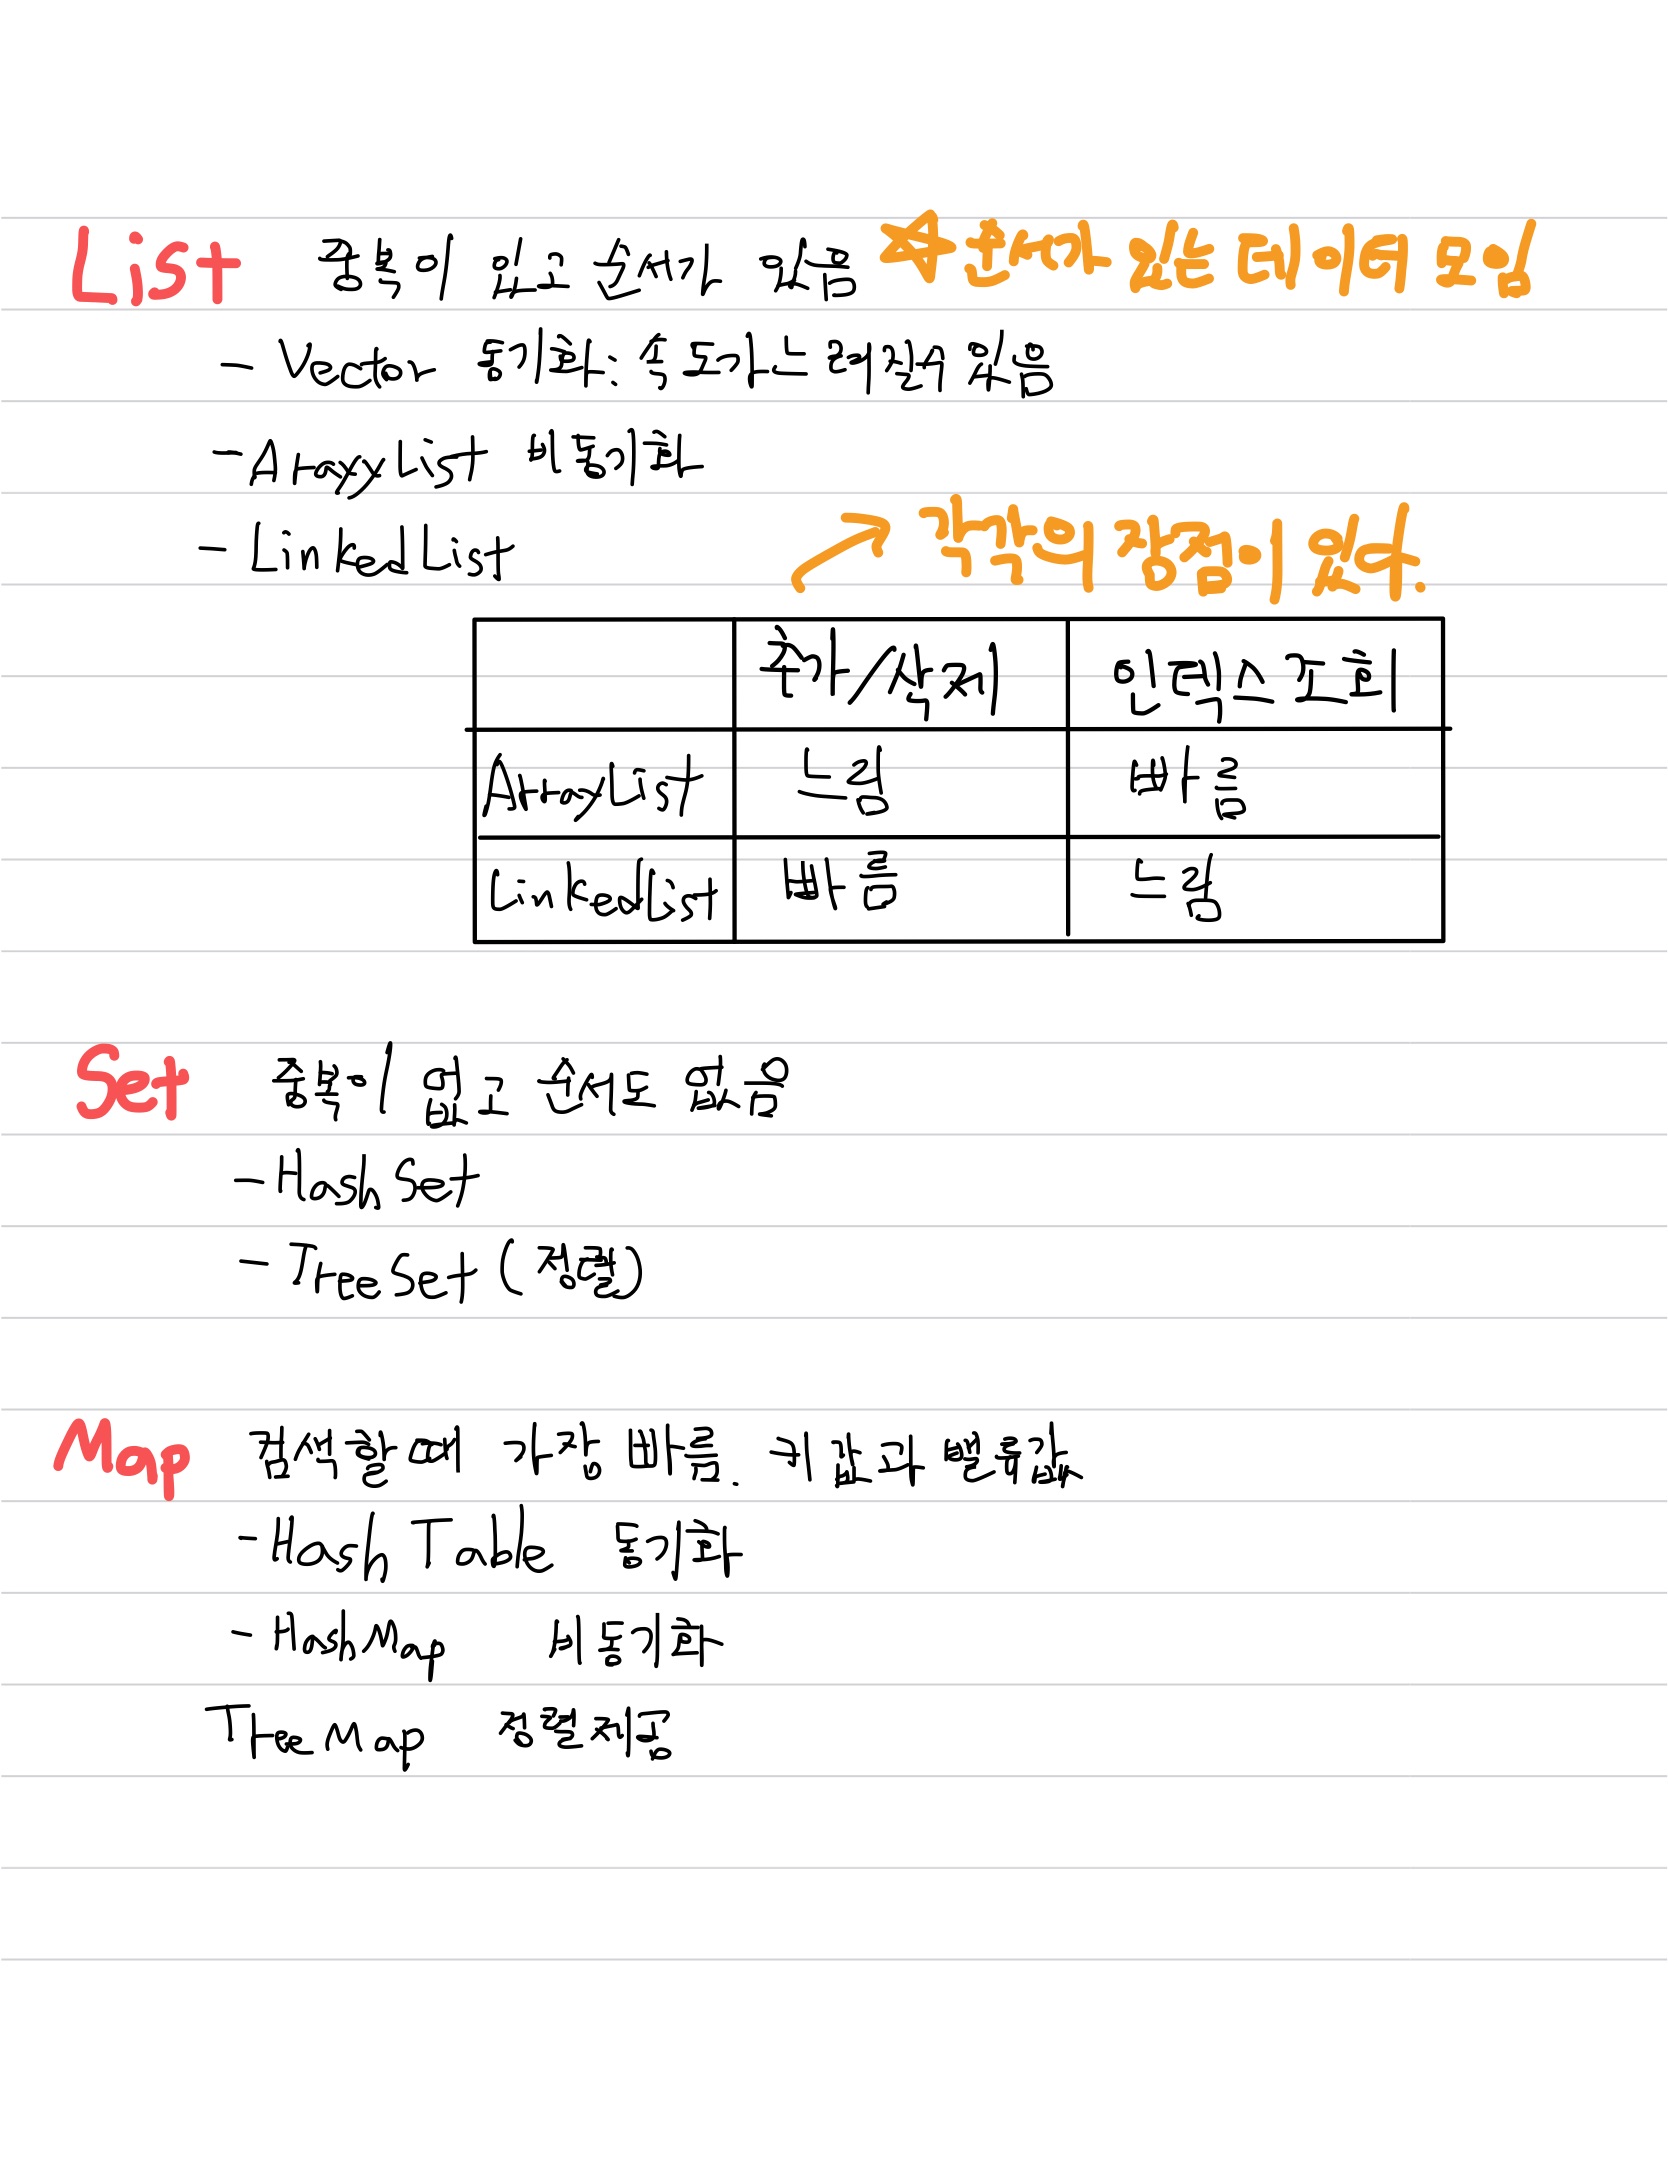 List 중복이 있고 순서가 있음 ☆순서가 있는 데이터 모임
- Vector 동기화: 속도가 느려질수 있음
- ArayyList 비동기화
- LinkedList
→ 각각의 장점이 있다.
추가/삭제 인덱스 조회
ArrayList 느림 빠름
LinkedList 빠름 느림
Set 중복이 없고 순서도 없음
- HashSet
- TreeSet (정렬)
Map 검색할때 가장 빠름. 키값과 밸류값
- Hash Table 동기화
- HashMap 비동기화
TreeMap 정렬제공